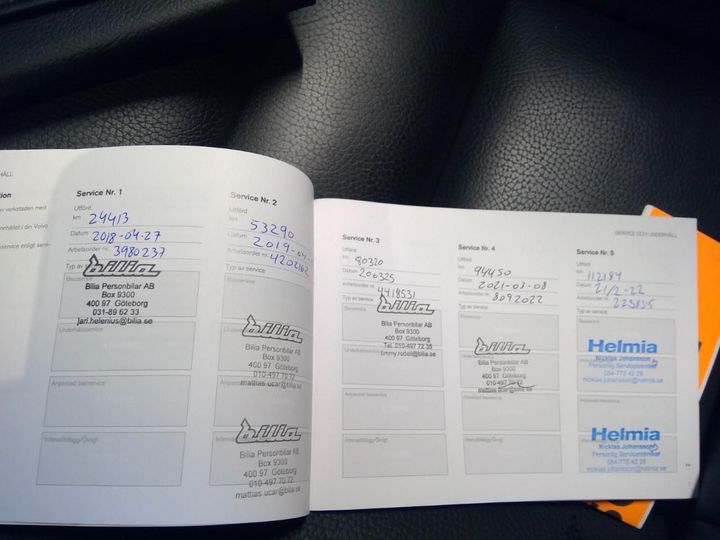 HÅLL
Service Nr. 1
Utförd
km 24413
Datum 2018-04-27
Arbetsorder nr. 3980237
Typ av
bilia
Bilia Personbilar AB
Box 9300
400 97 Göteborg
031-89 62 33
jari.helenius@bilia.se
Underhållsservice
Anpassad basservice
Intervalltillägg/Övrigt
Service Nr. 2
Utförd
km 53290
Datum 2019-04-
Arbetsorder nr. 4202162
Typ av service
Basservice
bilia
Bilia Personbilar AB
Box 9300
400 97 Göteborg
010-497 70 72
mattias.ucar@bilia.se
Anpassad
bilia
Bilia Personbilar AB
Box 9300
400 97 Göteborg
010-497 70 72
mattias.ucar@bilia.se
Service Nr. 3
Utförd
km 80320
Datum 200325
Arbetsorder nr. 4418531
Typ av
bilia
Bilia Personbilar AB
Box 9300
400 97 Göteborg
Tel. 010-497 72
@bilia.se
Anpassad basservice
Intervalltillägg/Övrigt
SERVICE OCH UNDERHÅLL
Service Nr. 4
Utförd
km 94450
Datum 2021-03-08
Arbetsorder nr. 8092022
Typ av service
bilia
Bilia Personbilar AB
Box 9300
400 97 Göteborg
010-497 70 72
mattias.ucar@bilia.se
Anpassad basservice
Intervalltillägg/Övrigt
Service Nr. 5
Utförd
km 112184
Datum 21/2-22
Arbetsorder nr.
Typ av service
Basservice
Helmia
Nicklas Johansson
Personlig Servicetekniker
054-775 43 28
nicklas.johansson@helmia.se
Anpassad basservice
Helmia
Nicklas Johansson
Personlig Servicetekniker
054-775 43 28
nicklas.johansson@helmia.se